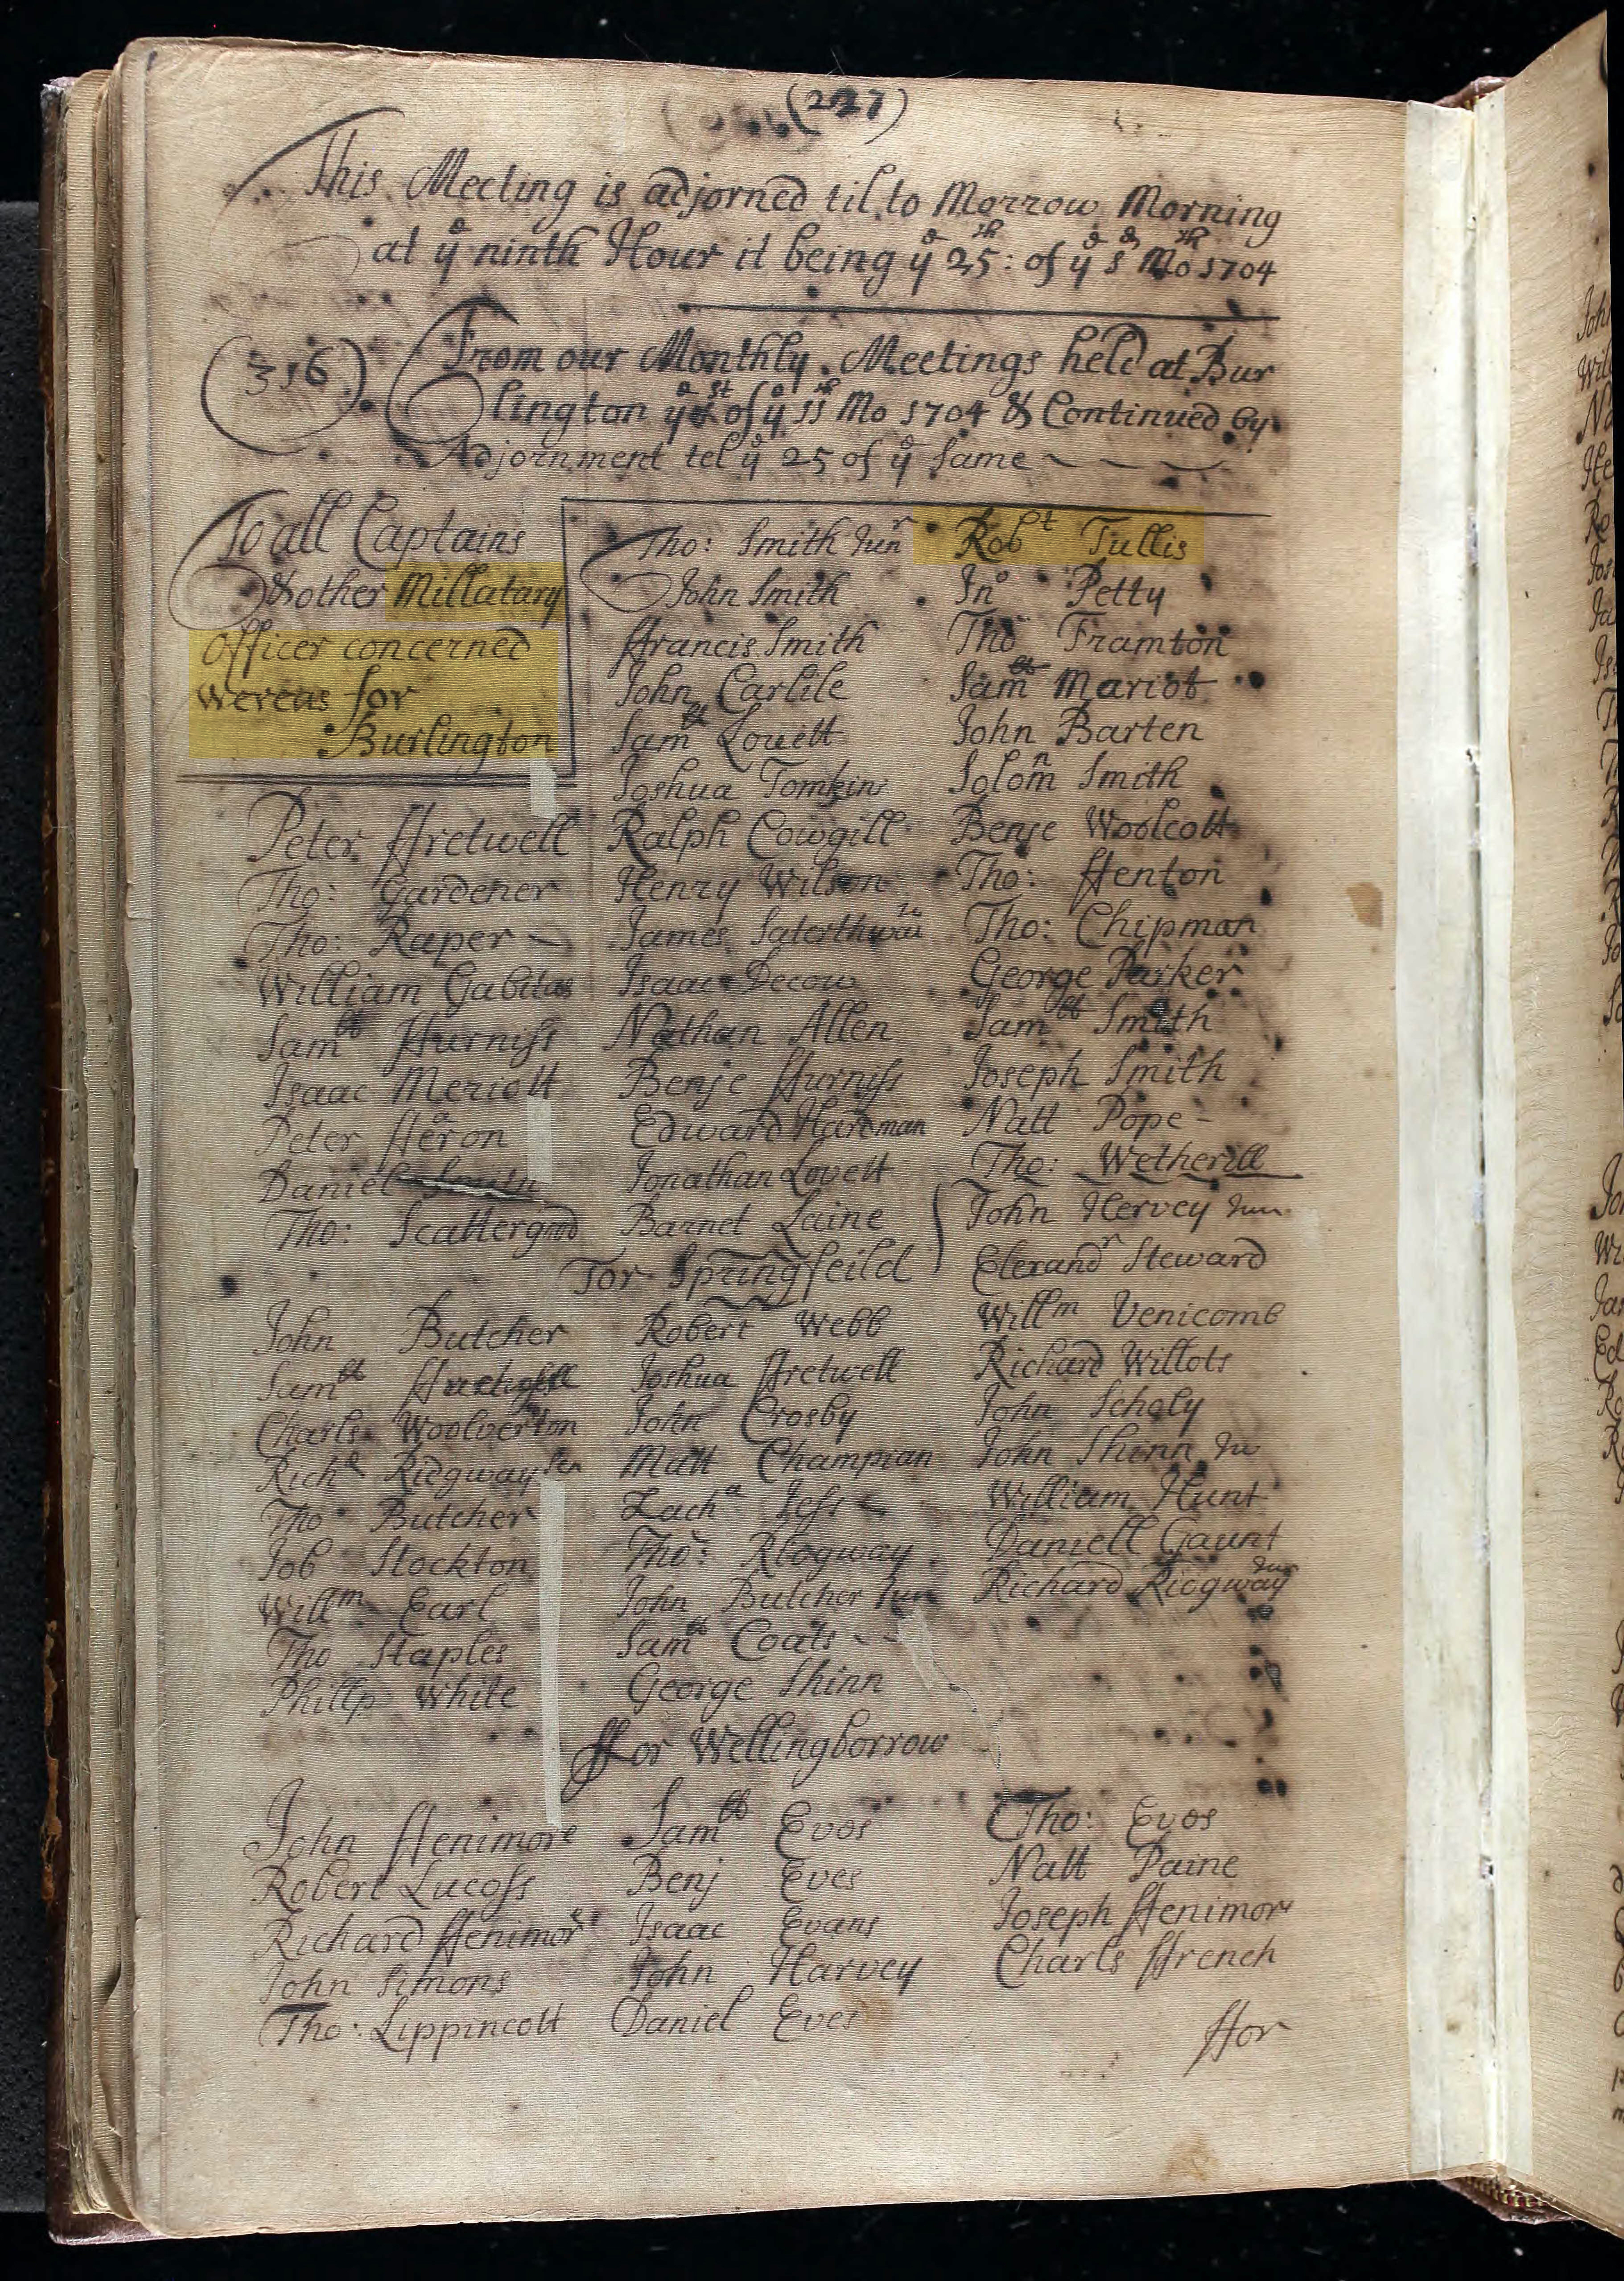 (227)
This Meeting is adjorned til to Morrow Morning
at ye ninth Hour it being ye 25th: of ye Mo 1704
(316) From our Monthly Meetings held at Bur
lington ye of ye 11th Mo 1704 & Continued by
Adjornment tel ye 25 of ye same
To all Captains
& other Millatary
Officer concerned
wereas for
Burlington
Peter ffretwell
Tho: Gardener
Tho: Raper
William Gabitas
Samll ffurniss
Isaac Meriott
Peter ffreron
Daniel Smith
Tho: Scattergood
Tho: Smith Junr
John Smith
ffrancis Smith
John Carlile
Samll Lovett
Joshua Tomkins
Ralph Cowgill
Henry Wilson
James Saterthwaite
Isaac Decow
Nathan Allen
Benje ffurniss
Edward Hardman
Jonathan Lovett
Barnet Laine
Robt Tullis
Jno Petty
Tho Framton
Samll Mariot
John Barten
Solomn Smith
Benje Woolcott
Tho: ffenton
Tho: Chipman
George Parker
Samll Smith
Joseph Smith
Natt Pope
Tho: Wetherill
John Hervey Jun
Elexandr Steward
For Springfeild
John Butcher Robert Webb Willm Venicomb
Samll Joshua ffretwell Richard Willots
Charls Woolverton John Crosby John Scholy
Richd Ridgway sen Matt Champian John Shinn Ju
Tho Butcher Zacha Jess William Hunt
Job Stockton Tho: Ridgway Daniell Gaunt
Willm Earl John Butcher Jun Richard Ridgway Jun
Tho Staples Samll Coats
Phillp White George Shinn
ffor Wellingborrow
John ffenimore Samll Evos Tho: Evos
Robert Lucass Benj Eves Natt Paine
Richard ffenimore Isaac Evans Joseph ffenimor
John Simons John Harvey Charls ffrench
Tho: Lippincott Daniel Eves
ffor